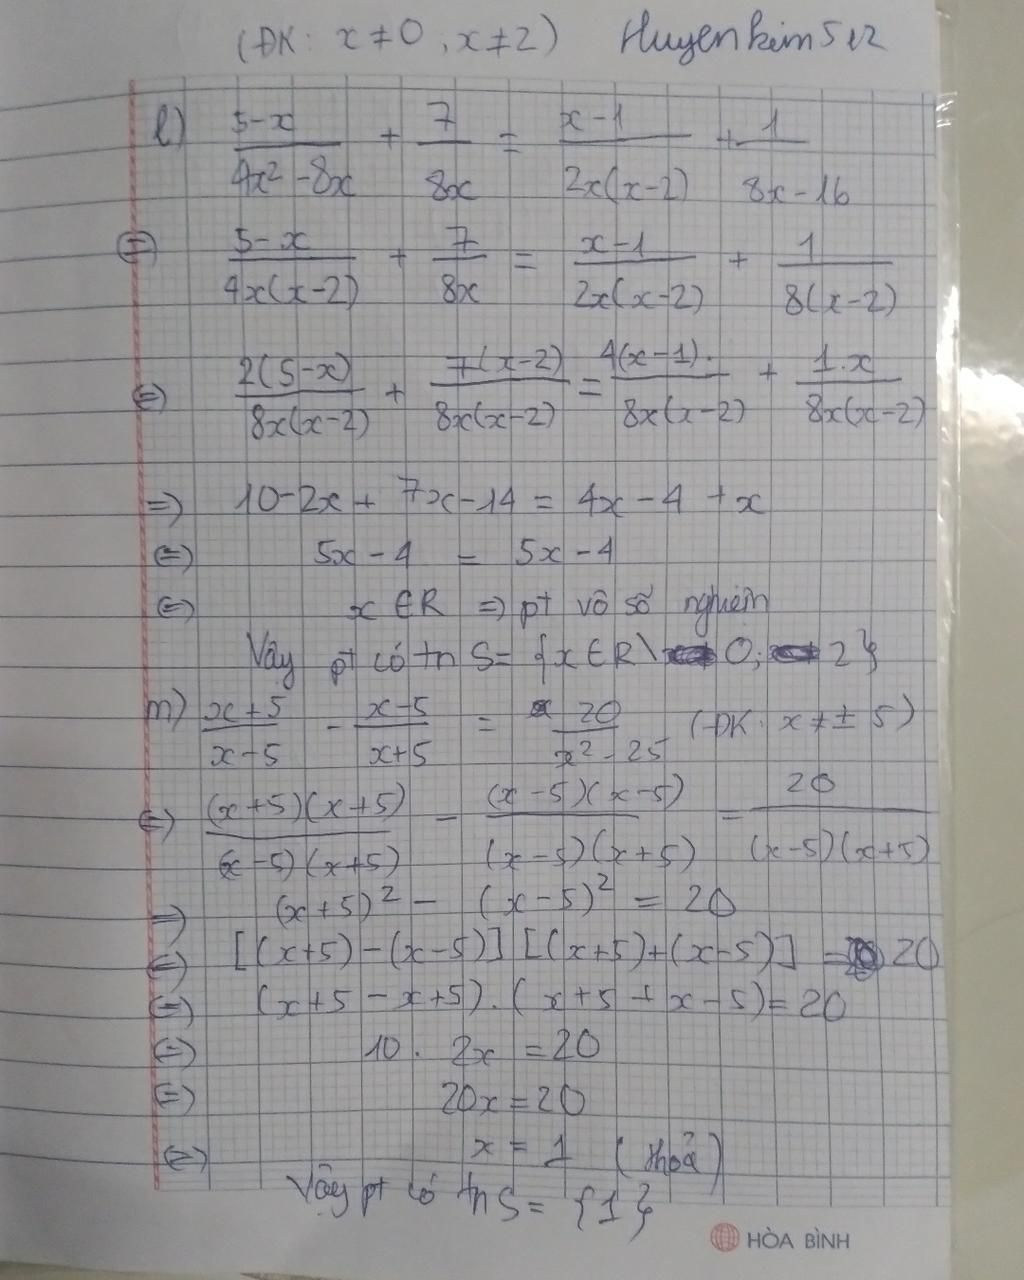 (ĐK: x ≠ 0, x ≠ 2) Huyenkim512
l) (5-x)/(4x² - 8x) + 7/(8x) = (x-1)/(2x(x-2)) + 1/(8x-16)
⇔ (5-x)/(4x(x-2)) + 7/(8x) = (x-1)/(2x(x-2)) + 1/(8(x-2))
⇔ (2(5-x))/(8x(x-2)) + (7(x-2))/(8x(x-2)) = (4(x-1).)/(8x(x-2)) + (1.x)/(8x(x-2))
⇒ 10-2x + 7x-14 = 4x-4 + x
⇔ 5x-4 = 5x-4
⇔ x ∈ R ⇒ pt vô số nghiệm
Vậy pt có tn S = {x ∈ R \ 0; 2}
m) (x+5)/(x-5) - (x-5)/(x+5) = 20/(x²-25) (ĐK: x ≠ ± 5)
⇔ ((x+5)(x+5))/((x-5)(x+5)) - ((x-5)(x-5))/((x-5)(x+5)) = 20/((x-5)(x+5))
⇒ (x+5)² - (x-5)² = 20
⇔ [(x+5)-(x-5)] [(x+5)+(x-5)] = 20
⇔ (x+5-x+5).(x+5+x-5) = 20
⇔ 10. 2x = 20
⇔ 20x = 20
⇔ x = 1 (thoả)
Vậy pt có tn S = {1}
HÒA BÌNH